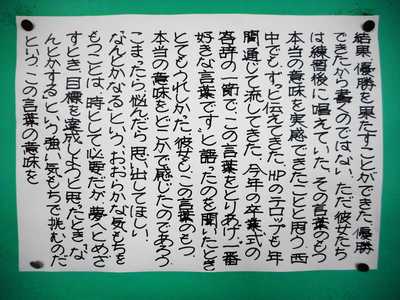 結果、優勝を果たすことができた。優勝
できたから書くのではない。ただ彼女たち
は練習後に唱えていた、その言葉のもつ
本当の意味を実感できたことと思う。西
中でもずっと伝えてきた。HPのテロップも年
間通じて流してきた。今年の卒業式の
答辞の一節で、この言葉をとりあげ「一番
好きな言葉です」と語ったのを聞いたとき
とてもうれしかった。彼女も、この言葉のもつ、
本当の意味をどこかで感じたのであろう。
こまったら、悩んだら思い出してほしい。
なんとかなるという、おおらかな気もちを
もつことは、時として必要だが、夢へとめざ
すとき、目標を達成しようと思ったとき、「な
んとかする」という強い気もちで挑むのだ
という、この言葉の意味を